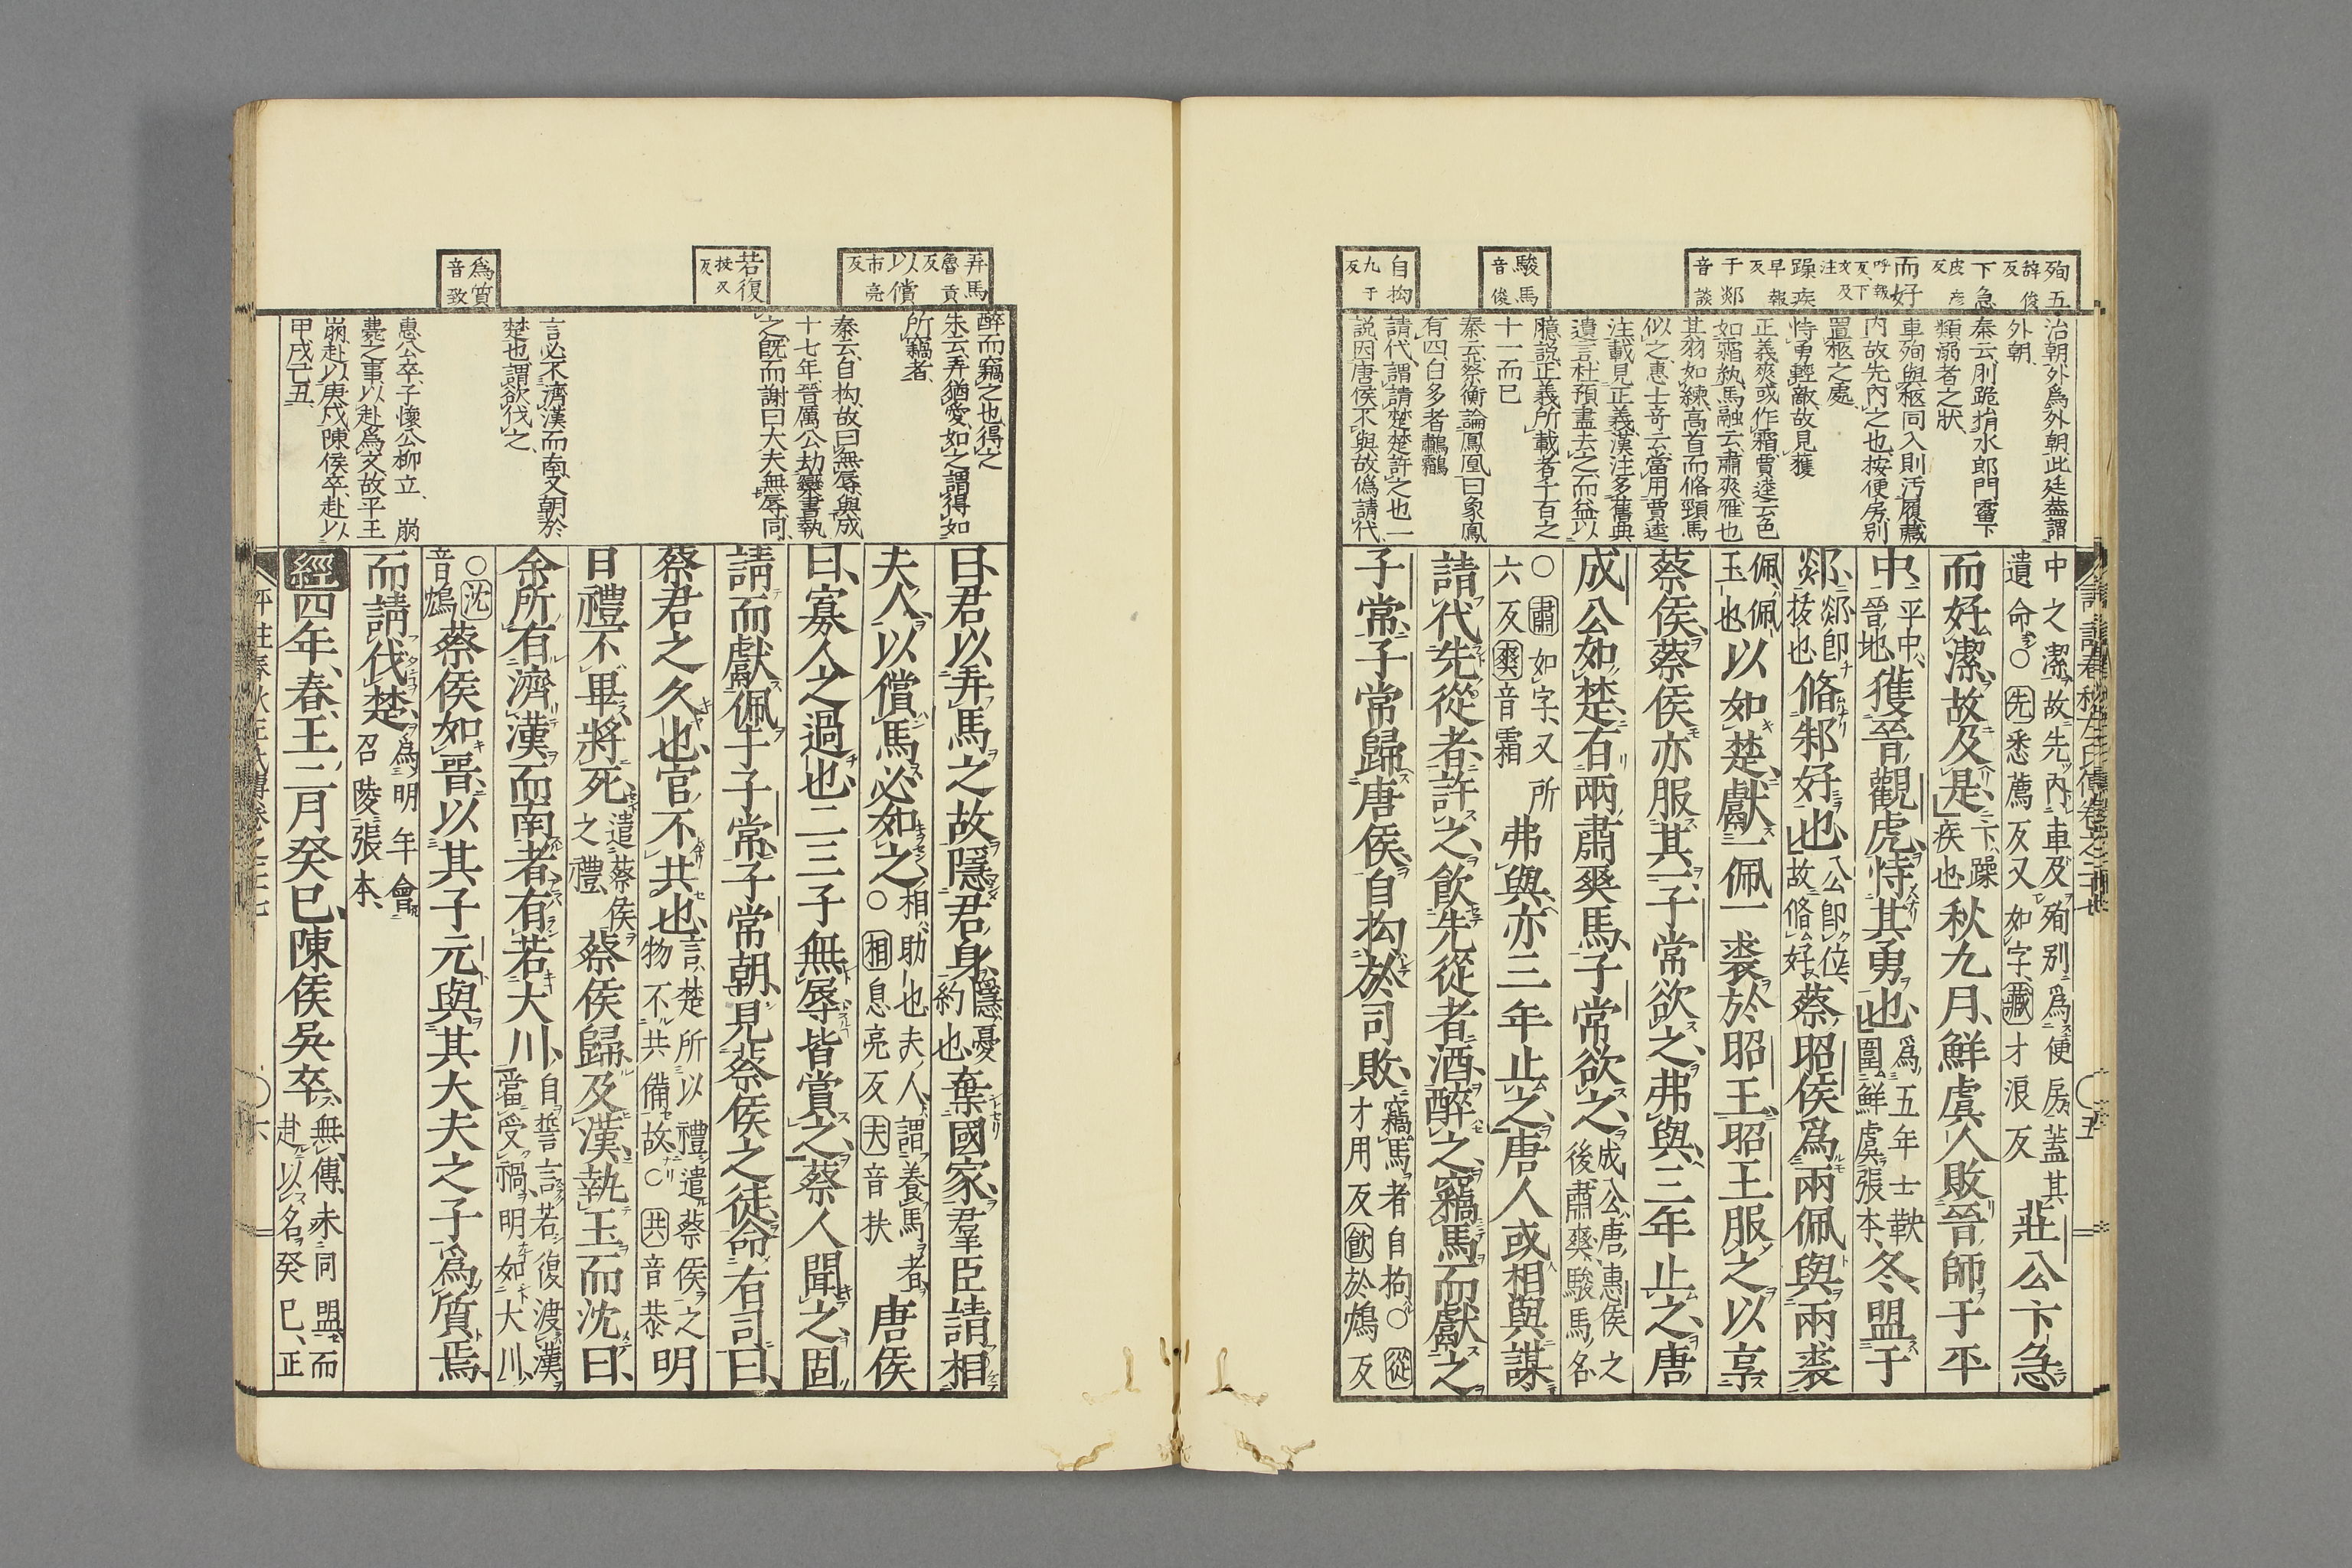 殉五
辞俊反
下急
皮彦反
而好
呼報反下文及注
躁疾
早報反
于郯
音談
駿馬
音俊
自拘
九于反
治朝外爲外朝此廷蓋謂
外朝
秦云則跪捐水郎門霤下
類溺者之狀
車殉與柩同入則汚履藏
内故先内之也按便房別
置柩之處
恃勇輕敵故見獲
正義爽或作霜賈逵云色
如霜紈馬融云肅爽雁也
其羽如練高首而脩頸馬
似之惠士奇云當用賈逵
注載見正義漢注多舊典
遺言杜預盡去之而益以
臆説正義所載者千百之
十一而已
秦云蔡衡論鳳凰曰象鳳
有四白多者鸕鷫
請代謂請楚楚許之也一
説因唐侯不與故僞請代
中之潔故先内車及殉別爲便房蓋其
遺命○先悉薦反又如字藏才浪反
莊公卞急
而好潔故及是
卞躁
疾也
秋九月鮮虞人敗晉師于平
中
平中
晉地
獲晉觀虎恃其勇也
爲五年士鞅
圍鮮虞張本
冬盟于
郯
郯即
抜也
脩邾好也
公即位
故脩好
蔡昭侯爲兩佩與兩裘
佩佩
玉也
以如楚獻一佩一裘於昭王昭王服之以享
蔡侯蔡侯亦服其一子常欲之弗與三年止之唐
成公如楚有兩肅爽馬子常欲之
成公唐惠侯之
後肅爽駿馬名
○肅如字又所
六反爽音霜
弗與亦三年止之唐人或相與謀
請代先從者許之飲先從者酒醉之竊馬而獻之
子常子常歸唐侯自拘於司敗
竊馬者自拘○從
才用反飲於鴆反
評註春秋左氏傳卷之二十七
五
弄馬
魯貢反
以償
市亮反
若復
扶又反
爲質
音致
醉而竊之也得之
朱云弄猶愛如之謂得如
所竊者
秦云自拘故曰無辱與成
十七年晉厲公劫欒書執
之既而謝曰大夫無辱同
言必不濟漢而南又朝於
楚也謂欲伐之
惠公卒子懷公柳立　崩
薨之事以赴爲文故平王
崩赴以庚戌陳侯卒赴以
甲戌己丑
曰君以弄馬之故隱君身
隱憂
約也
棄國家羣臣請相
夫人以償馬必如之
相助也夫人謂養馬者
○相息亮反夫音扶
唐侯
曰寡人之過也二三子無辱皆賞之蔡人聞之固
請而獻佩于子常子常朝見蔡侯之徒命有司曰
蔡君之久也官不共也
言楚所以禮遣蔡侯之
物不共備故○共音恭
明
日禮不畢將死
遣蔡侯
之禮
蔡侯歸及漢執玉而沈曰
余所有濟漢而南者有若大川
自誓言若復渡漢
當受禍明如大川
○沈
音鴆
蔡侯如晉以其子元與其大夫之子爲質焉
而請伐楚
爲明年會
召陵張本
經四年春王二月癸巳陳侯吳卒
無傳未同盟而
赴以名癸巳正
評註春秋左氏傳卷之二十七
六